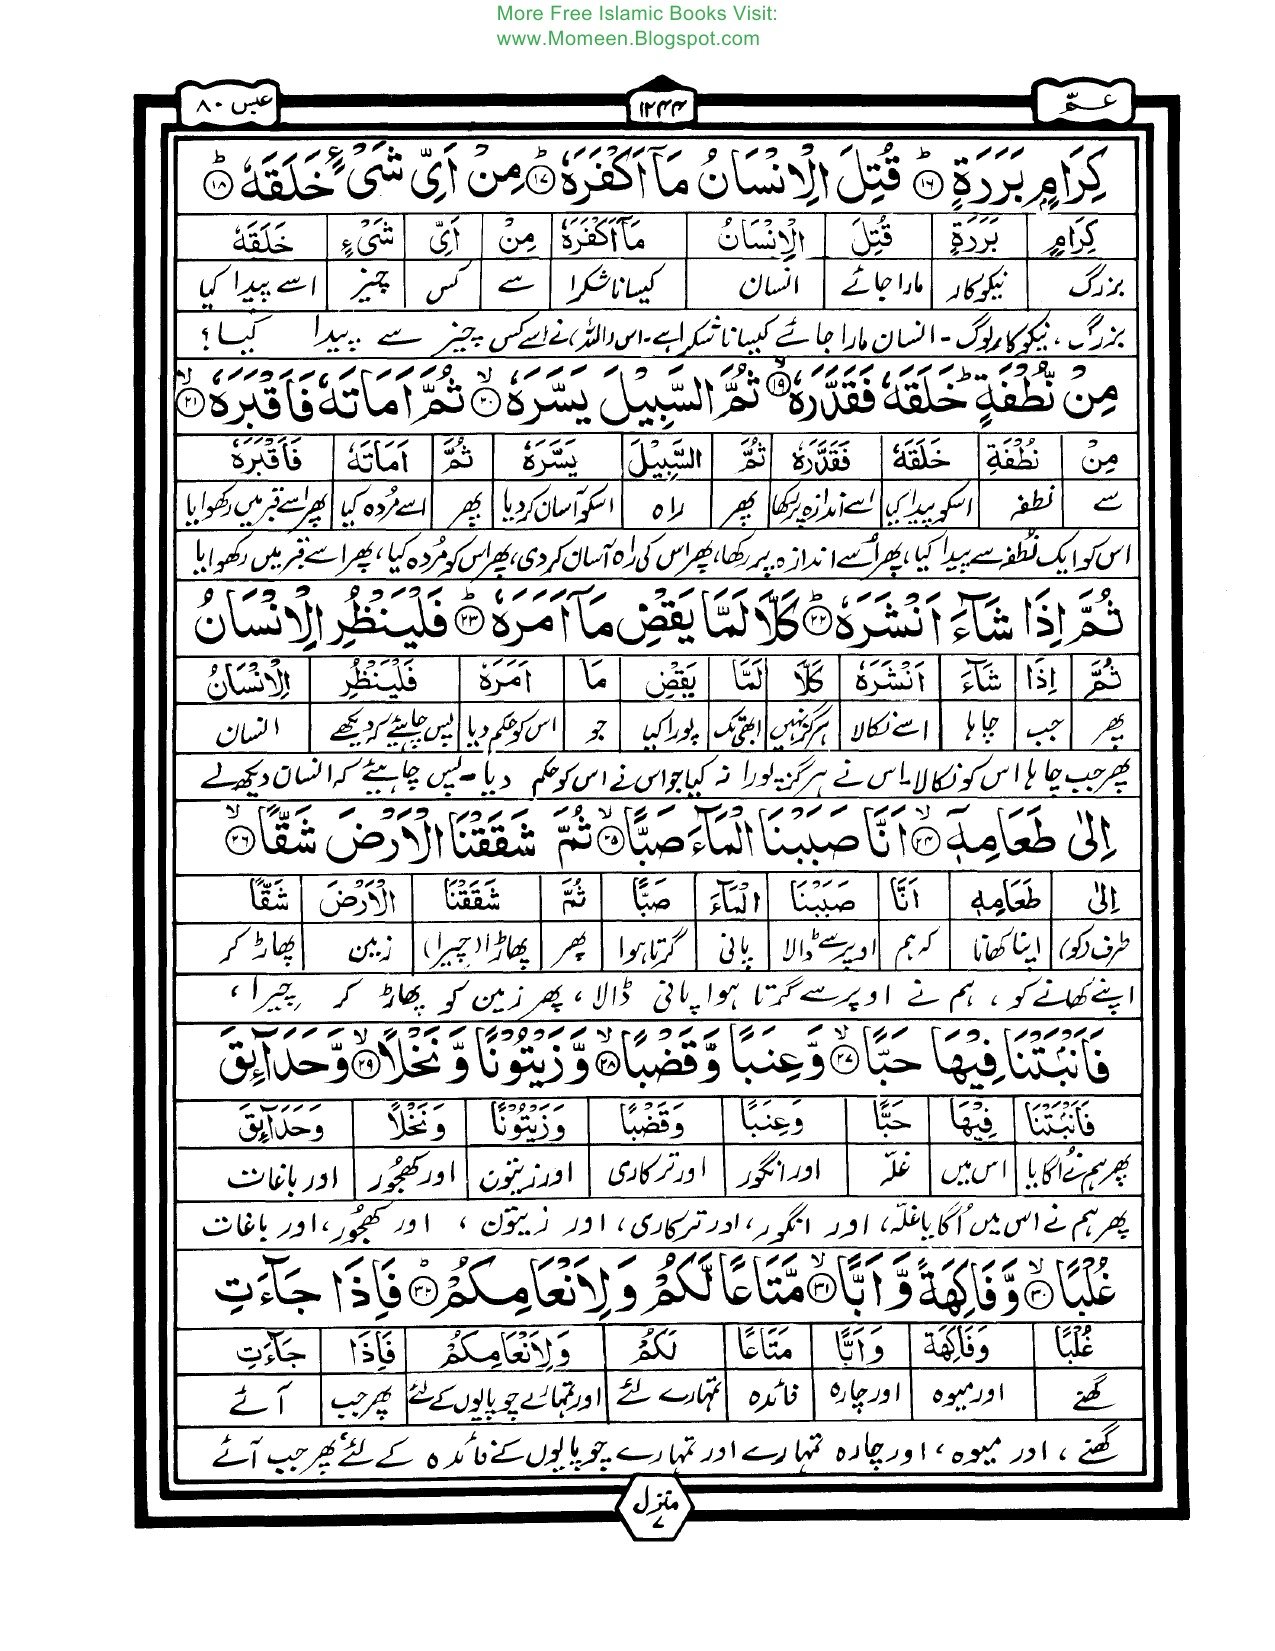 More Free Islamic Books Visit:
www.Momeen.Blogspot.com
عمّ
۱۲۴۴
عبس ۸۰
كِرَامٍۭ بَرَرَةٍ ﴿۱۶﴾ قُتِلَ الْاِنْسَانُ مَآ اَكْفَرَهٗ ﴿۱۷﴾ مِنْ اَىِّ شَىْءٍ خَلَقَهٗ ﴿۱۸﴾
كِرَامٍ بَرَرَةٍ قُتِلَ الْاِنْسَانُ مَآ اَكْفَرَهٗ مِنْ اَىِّ شَىْءٍ خَلَقَهٗ
بزرگ نیکوکار مارا جائے انسان کیسا ناشکرا سے کس چیز اسے پیدا کیا
بزرگ ، نیکوکار لوگ - انسان مارا جائے کیسا ناشکرا ہے - اس (اللہ) نے اسے کس چیز سے پیدا کیا ؟
مِنْ نُّطْفَةٍ خَلَقَهٗ فَقَدَّرَهٗ ﴿۱۹﴾ ثُمَّ السَّبِيْلَ يَسَّرَهٗ ﴿۲۰﴾ ثُمَّ اَمَاتَهٗ فَاَقْبَرَهٗ ﴿۲۱﴾
مِنْ نُطْفَةٍ خَلَقَهٗ فَقَدَّرَهٗ ثُمَّ السَّبِيْلَ يَسَّرَهٗ ثُمَّ اَمَاتَهٗ فَاَقْبَرَهٗ
سے نطفہ اسکو پیدا کیا اسے اندازہ پر رکھا پھر راہ اسکو آسان کر دیا پھر اسے مُردہ کیا پھر اسے قبر میں رکھوایا
اس کو ایک نُطفہ سے پیدا کیا ، پھر اُسے اندازہ پر رکھا ، پھر اس کی راہ آسان کر دی ، پھر اس کو مُردہ کیا ، پھر اسے قبر میں رکھوایا
ثُمَّ اِذَا شَآءَ اَنْشَرَهٗ ﴿۲۲﴾ كَلَّا لَمَّا يَقْضِ مَآ اَمَرَهٗ ﴿۲۳﴾ فَلْيَنْظُرِ الْاِنْسَانُ
ثُمَّ اِذَا شَآءَ اَنْشَرَهٗ كَلَّا لَمَّا يَقْضِ مَا اَمَرَهٗ فَلْيَنْظُرِ الْاِنْسَانُ
پھر جب چاہا اسے نکالا ہرگز نہیں ابھی تک پورا کیا جو اس کو حکم دیا پس چاہیئے کہ دیکھے انسان
پھر جب چاہا اس کو نکالا - اس نے ہرگز پورا نہ کیا جو اس نے اس کو حکم دیا - پس چاہیئے کہ انسان دیکھ لے
اِلٰى طَعَامِهٖٓ ﴿۲۴﴾ اَنَّا صَبَبْنَا الْمَآءَ صَبًّا ﴿۲۵﴾ ثُمَّ شَقَقْنَا الْاَرْضَ شَقًّا ﴿۲۶﴾
اِلٰى طَعَامِهٖ اَنَّا صَبَبْنَا الْمَآءَ صَبًّا ثُمَّ شَقَقْنَا الْاَرْضَ شَقًّا
طرف (کو) اپنا کھانا کہ ہم اوپر سے ڈالا پانی گرتا ہوا پھر پھاڑا (چیرا) زمین پھاڑ کر
اپنے کھانے کو ، ہم نے اوپر سے گرتا ہوا پانی ڈالا ، پھر زمین کو پھاڑ کر چیرا ،
فَاَنْبَتْنَا فِيْهَا حَبًّا ﴿۲۷﴾ وَّعِنَبًا وَّقَضْبًا ﴿۲۸﴾ وَّزَيْتُوْنًا وَّنَخْلًا ﴿۲۹﴾ وَّحَدَآئِقَ
فَاَنْبَتْنَا فِيْهَا حَبًّا وَعِنَبًا وَقَضْبًا وَزَيْتُوْنًا وَنَخْلًا وَحَدَآئِقَ
پھر ہم نے اُگایا اس میں غلّہ اور انگور اور ترکاری اور زیتون اور کھجور اور باغات
پھر ہم نے اس میں اُگایا غلّہ ، اور انگور ، اور ترکاری ، اور زیتون ، اور کھجور ، اور باغات
غُلْبًا ﴿۳۰﴾ وَّفَاكِهَةً وَّاَبًّا ﴿۳۱﴾ مَّتَاعًا لَّكُمْ وَلِاَنْعَامِكُمْ ﴿۳۲﴾ فَاِذَا جَآءَتِ
غُلْبًا وَفَاكِهَةً وَاَبًّا مَتَاعًا لَكُمْ وَلِاَنْعَامِكُمْ فَاِذَا جَآءَتِ
گھنے اور میوہ اور چارہ فائدہ تمہارے لئے اور تمہارے چوپایوں کے لئے پھر جب آئے
گھنے ، اور میوہ ، اور چارہ تمہارے اور تمہارے چوپایوں کے فائدہ کے لئے پھر جب آئے
منزل
۷